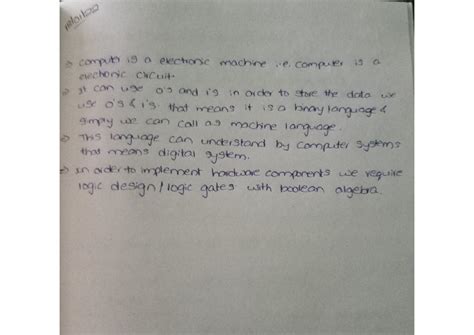 ⇒ computer is a electronic machine i.e. computer is a
electronic circuit.
⇒ It can use o's and i's in order to store the data we
use o's & i's that means it is a binary language &
simply we can call as machine language.
⇒ This language can understand by computer systems
that means digital system.
⇒ In order to implement hardware components we require
logic design / logic gates with boolean algebra.